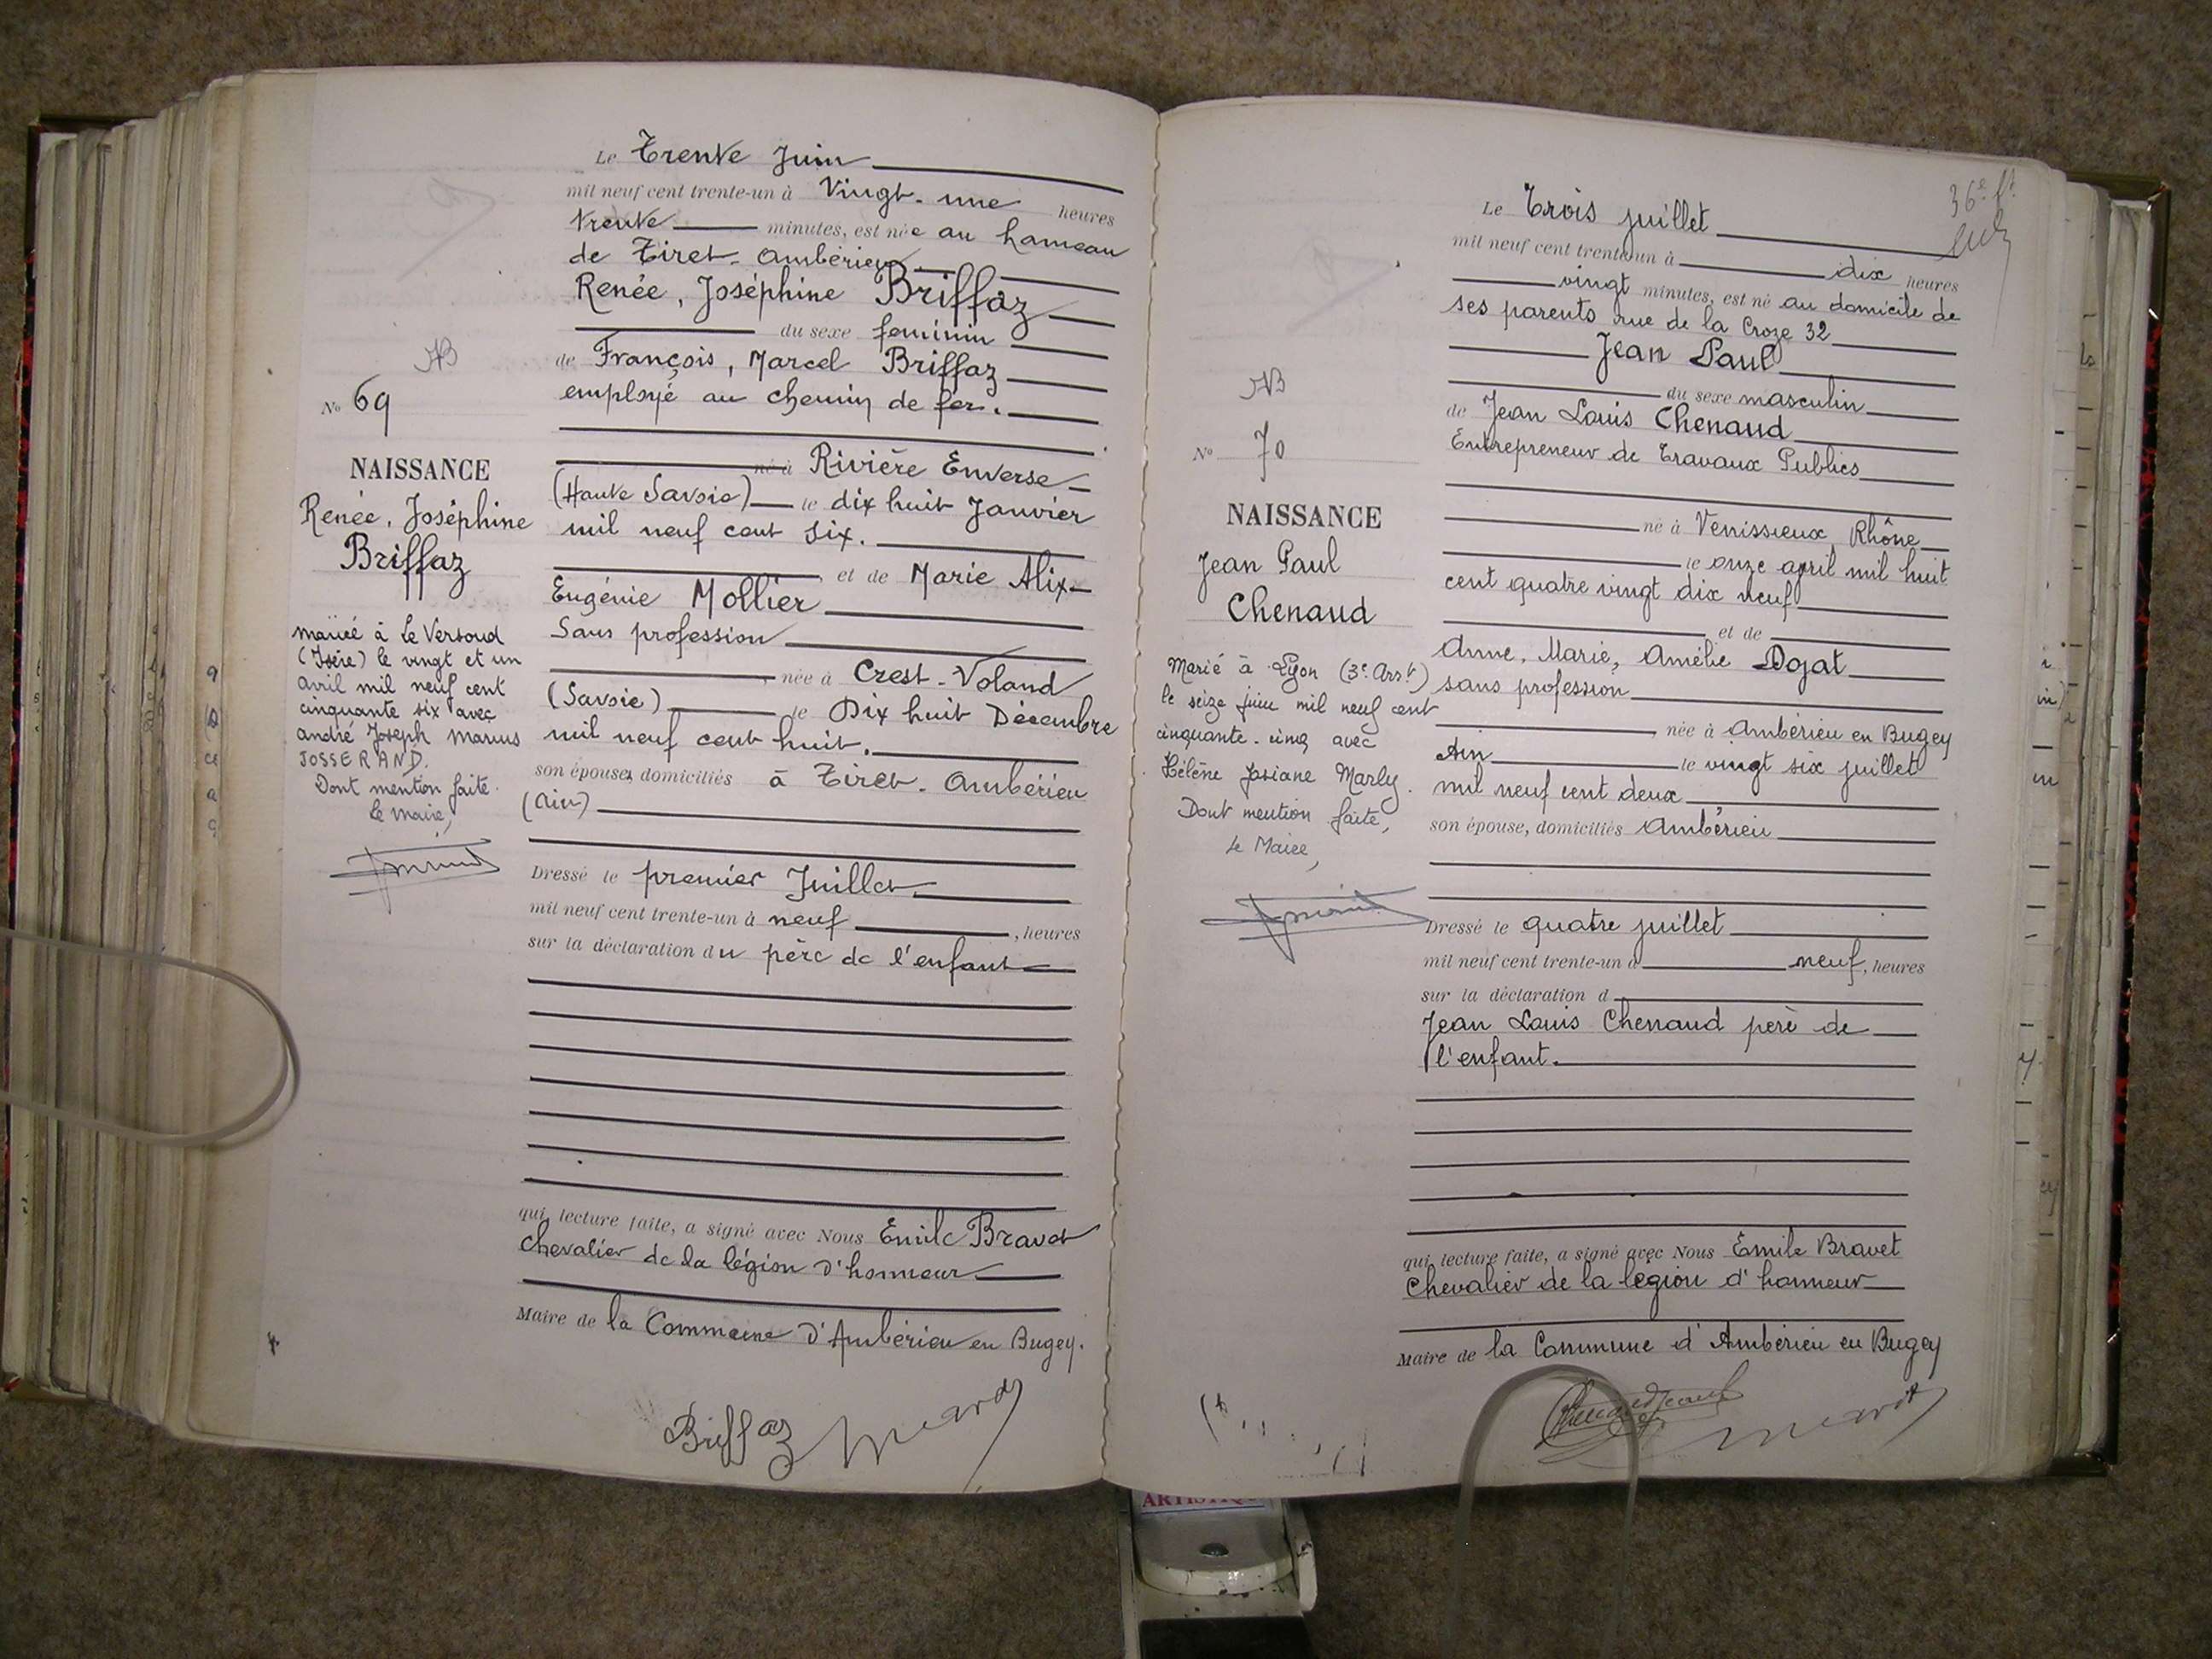 Le Trente Juin
mil neuf cent trente-un à Vingt-une heures
trente minutes, est née au hameau
de Tiret-Ambérieu
Renée, Joséphine Briffaz
du sexe feminin
de François, Marcel Briffaz
employé au chemin de fer.
né à Rivière Enverse
(Haute Savoie) le dix huit Janvier
mil neuf cent six.
et de Marie Alix
Eugénie Mollier
Sans profession
née à Crest-Voland
(Savoie) le Dix huit Décembre
mil neuf cent huit.
son épouse, domiciliés à Tiret-Ambérieu
(Ain)
Dressé le premier Juillet
mil neuf cent trente-un à neuf, heures
sur la déclaration du père de l'enfant
qui, lecture faite, a signé avec Nous Emile Bravet
Chevalier de la légion d'honneur
Maire de la Commune d'Ambérieu en Bugey.
Briffaz
NB
No 69
NAISSANCE
Renée, Joséphine
Briffaz
mariée à Le Versoud
(Isère) le vingt et un
avril mil neuf cent
cinquante six avec
andré Joseph Marius
JOSSERAND.
Dont mention faite.
Le Maire,
36e ft
Le Trois juillet
mil neuf cent trente-un à dix heures
vingt minutes, est né au domicile de
ses parents rue de la Croze 32
Jean Paul
du sexe masculin
de Jean Louis Chenaud
Entrepreneur de Travaux Publics
né à Venissieux Rhône
le onze april mil huit
cent quatre vingt dix neuf
et de
Anne, Marie, Amélie Dojat
sans profession
née à Ambérieu en Bugey
Ain le vingt six juillet
mil neuf cent deux
son épouse, domiciliés Ambérieu
Dressé le quatre juillet
mil neuf cent trente-un à neuf, heures
sur la déclaration d
Jean Louis Chenaud perè de
l'enfant.
qui, lecture faite, a signé avec Nous Emile Bravet
Chevalier de la legion d'honneur
Maire de la Commune d'Ambérieu en Bugey
NB
No 70
NAISSANCE
Jean Paul
Chenaud
Marié à Lyon (3e Arrt)
le seize juin mil neuf cent
cinquante-cinq avec
Hélène Josiane Marly.
Dont mention faite,
Le Maire,